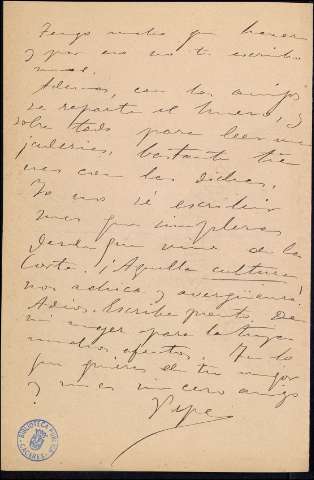 Tengo mucho que hacer
y por eso no te escribo
mas.
Ademas, con los amigos
se reparte el humor, y
sobre todo para leer me
bastante tie
nes con las dichas.
Yo no sé escribir
mas que
desde que vine de la
Corte. ¡Aquella cultura
nos achica y avergüenza!
Adios. Escribe pronto. De
mi mujer para la tuya
muchos afectos. Tu lo
que quieras de tu mejor
y mas sincero amigo
Pepe
BIBLIOTECA PUB.
CACERES